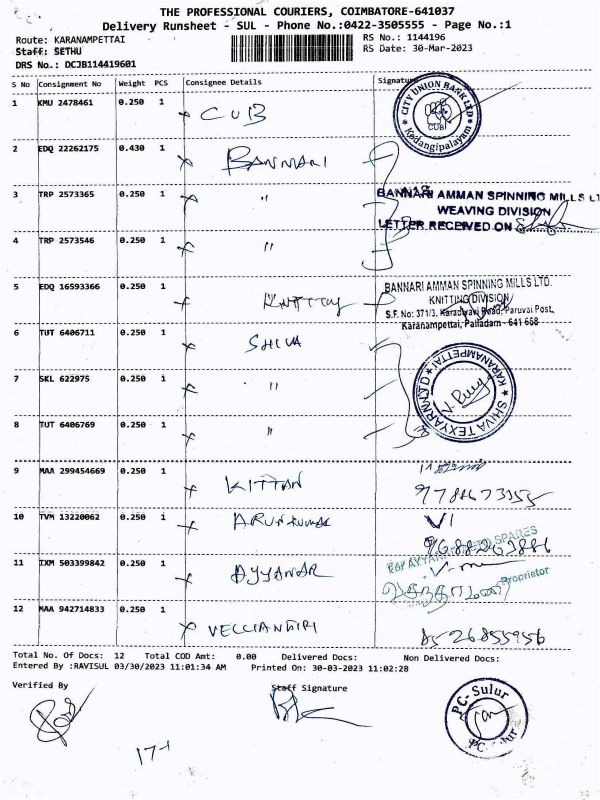 THE PROFESSIONAL COURIERS, COIMBATORE-641037
Delivery Runsheet - SUL - Phone No.:0422-3505555 - Page No.:1
Route: KARANAMPETTAI
Staff: SETHU
DRS No.: DCJB114419601
RS No.: 1144196
RS Date: 30-Mar-2023
S No Consignment No Weight PCS Consignee Details Signature
1 KMU 2478461 0.250 1 CUB
CITY UNION BANK LTD
CUBI
Kodangipalayam
2 EDQ 22262175 0.430 1 BANNARI
3 TRP 2573365 0.250 1 "
BANNARI AMMAN SPINNING MILLS LT
WEAVING DIVISION
LETTER RECEIVED ON
4 TRP 2573546 0.250 1 "
5 EDQ 16593366 0.250 1 Knitting
BANNARI AMMAN SPINNING MILLS LTD.
KNITTING DIVISION
S.F. No: 371/3, Karadivavi Road, Paruvai Post,
Karanampettai, Palladam - 641 658
6 TUT 6406711 0.250 1 SHIVA
7 SKL 622975 0.250 1 "
SHIVA TEXYARN LTD
KARANAMPETTAI
8 TUT 6406769 0.250 1 "
9 MAA 299454669 0.250 1 KITTAN
10 TVM 13220062 0.250 1 ARUNKUMAR
11 IXM 503399842 0.250 1 AYYANAR
SPARES
Proprietor
12 MAA 942714833 0.250 1 VELLIANGIRI 8526855956
Total No. Of Docs: 12 Total COD Amt: 0.00 Delivered Docs: Non Delivered Docs:
Entered By :RAVISUL 03/30/2023 11:01:34 AM Printed On: 30-03-2023 11:02:28
Verified By Staff Signature
PC-Sulur
PC-Sulur
17-1